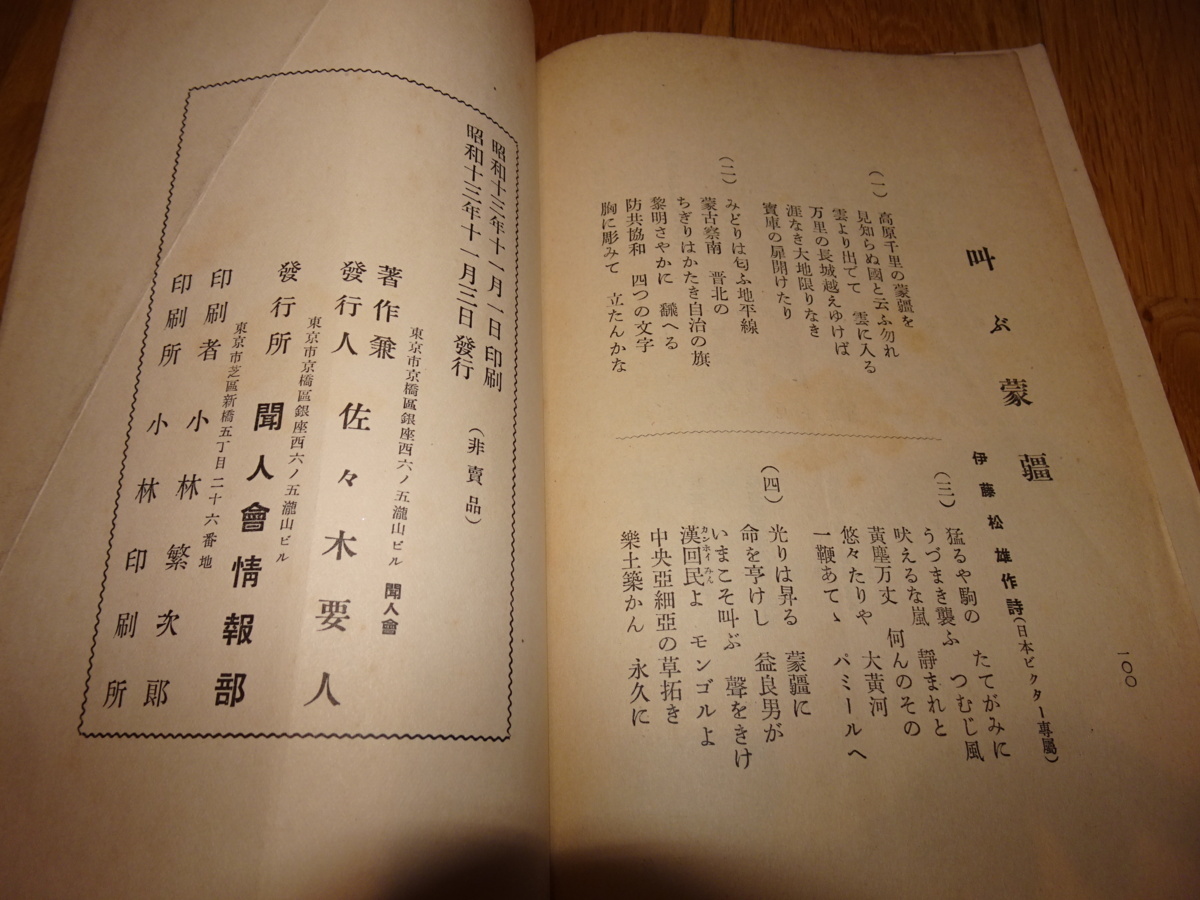 叫ぶ蒙疆
伊藤松雄作詩(日本ビクター專屬)
(一)
高原千里の蒙疆を
見知らぬ國と云ふ勿れ
雲より出てて 雲に入る
万里の長城越えゆけば
涯なき大地限りなき
寳庫の扉開けたり
(二)
みどりは匂ふ地平線
蒙古察南 晋北の
ちぎりはかたき自治の旗
黎明さやかに 飜へる
防共協和 四つの文字
胸に彫みて 立たんかな
(三)
猛るや駒の たてがみに
うづまき襲ふ つむじ風
吠えるな嵐 靜まれと
黃塵万丈 何んのその
悠々たりや 大黃河
一鞭あてゝ パミールへ
(四)
光りは昇る 蒙疆に
命を亨けし 益良男が
いまこそ叫ぶ 聲をきけ
漢回民よ モンゴルよ
カンホイみん
中央亞細亞の草拓き
樂土築かん 永久に
一〇〇
昭和十三年十一月一日印刷
昭和十三年十一月三日發行
(非賣品)
東京市京橋區銀座西六ノ五瀧山ビル 聞人會
著作兼
發行人 佐々木要人
東京市京橋區銀座西六ノ五瀧山ビル
發行所 聞人會情報部
東京市芝區新橋五丁目二十六番地
印刷者 小林繁次郞
印刷所 小林印刷所